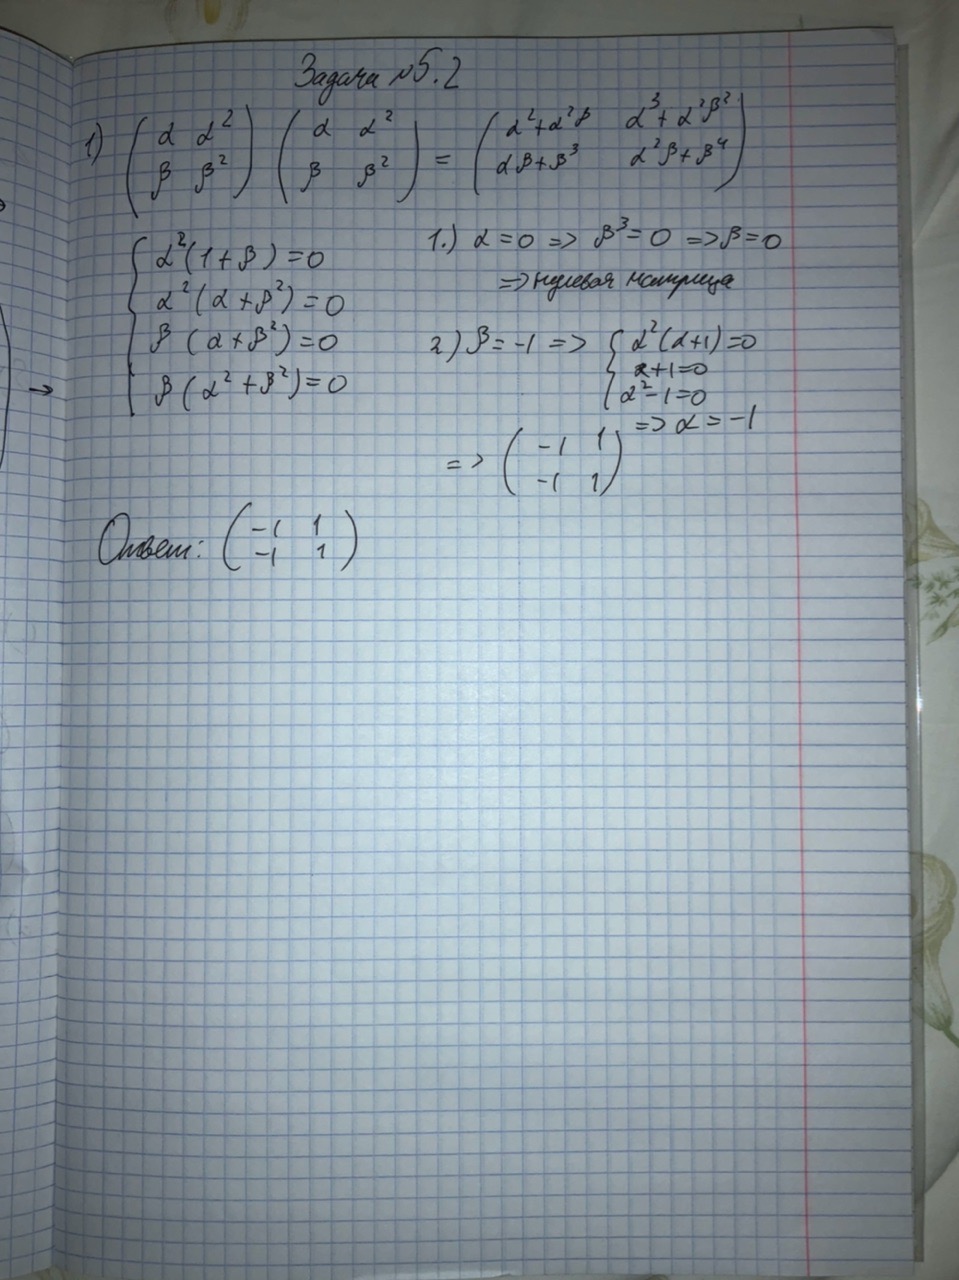 Задача №5.2
1) (α α² β β²) (α α² β β²) = (α²+α²β α³+α²β² αβ+β³ α²β+β⁴)
{ α²(1+β)=0
α²(α+β²)=0
β (α+β²)=0
β (α²+β²)=0
1.) α=0 => β³=0 => β=0
=> нулевая матрица
2) β=-1 => { α²(α+1)=0
α+1=0
α²-1=0
=> α=-1
=> (-1 1 -1 1)
Ответ: (-1 1 -1 1)